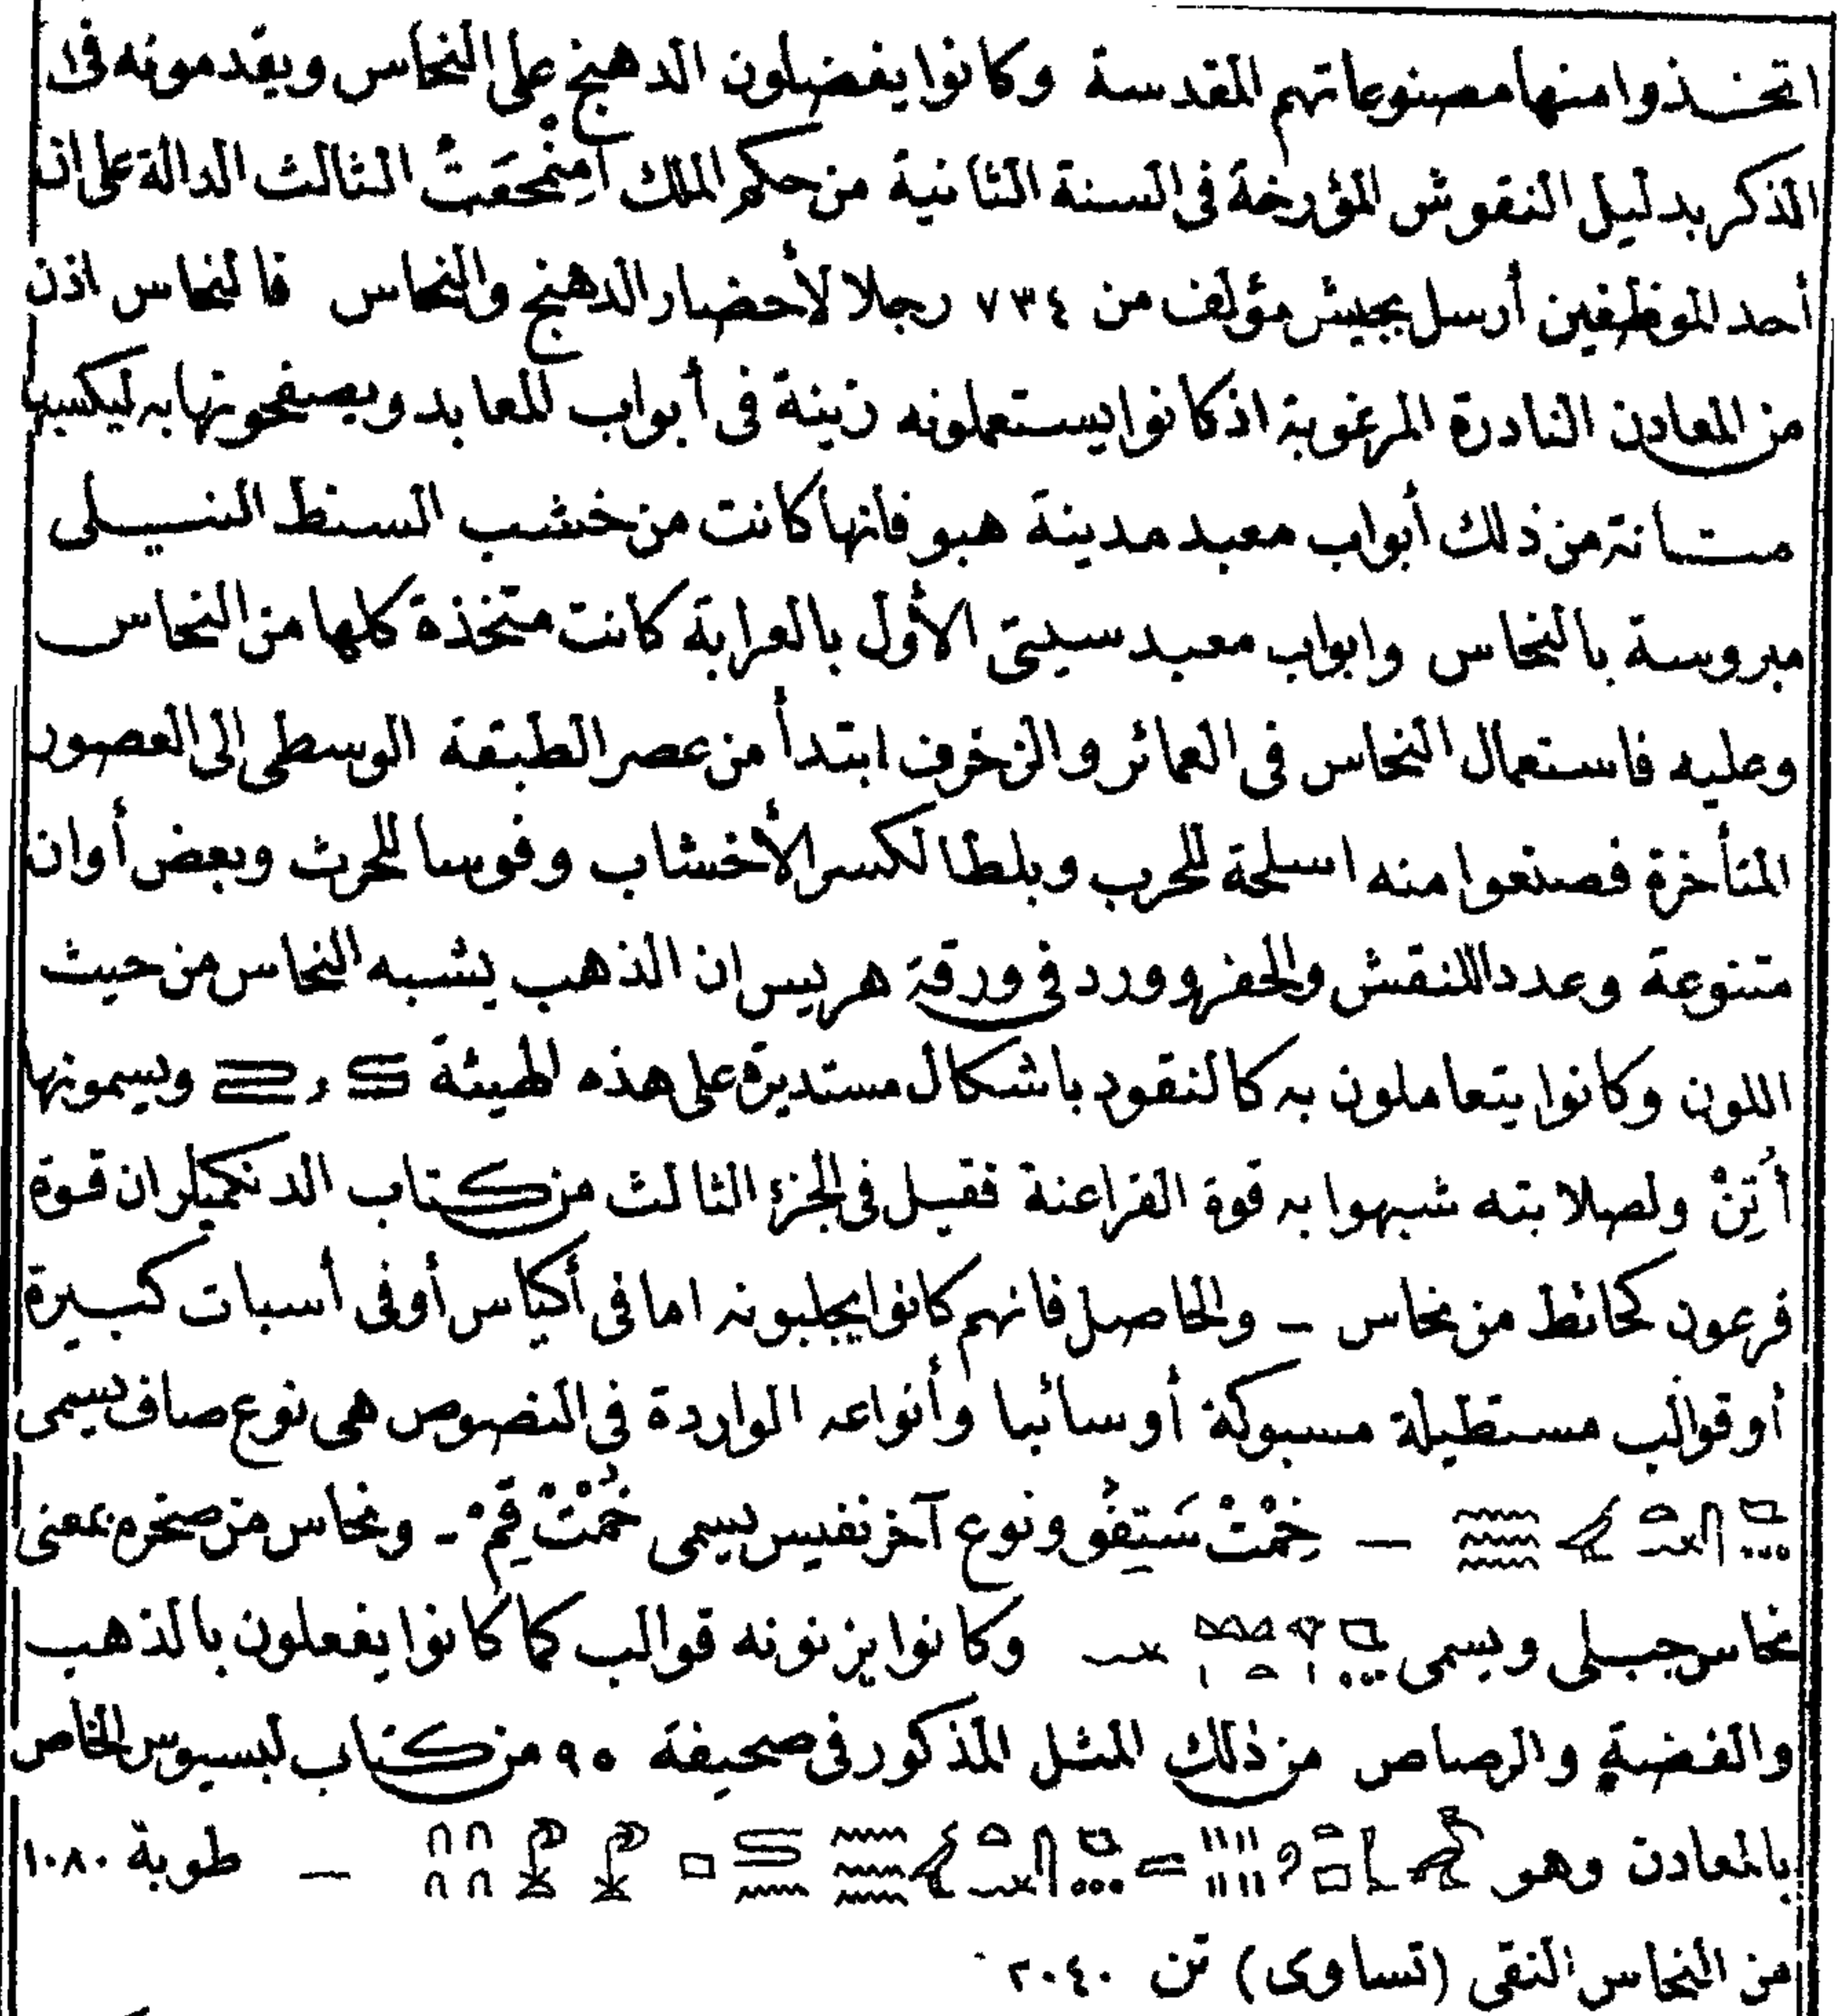 اتخذوا منها مصنوعاتهم المقدسة وكانوا يفضلون الدهنج على النحاس ويقدمونه فى
الذكر بدليل النقوش المؤرخة فى السنة الثانية من حكم الملك أمنمحعت الثالث الدالة على ان
أحد الموظفين أرسل بجيش مؤلف من ٧٣٤ رجلا لأحضار الدهنج والنحاس فالنحاس اذن
من المعادن النادرة المرغوبة اذ كانوا يستعملونه زينة فى أبواب للمعابد ويصفحونها به ليكسبها
متانة من ذلك أبواب معبد مدينة هبو فانها كانت من خشب السنط النيلى
مبروسة بالنحاس وابواب معبد سيتى الأول بالعرابة كانت متخذة كلها من النحاس
وعليه فاستعمال النحاس فى العمائر والزخرف ابتدأ من عصر الطبقة الوسطى الى العصور
المتأخرة فصنعوا منه اسلحة للحرب وبلطا لكسر الأخشاب وفوسا للحرث وبعض أوان
متنوعة وعددا للنقش والحفر وورد فى ورقة هريس ان الذهب يشبه النحاس من حيث
اللون وكانوا يتعاملون به كالنقود باشكال مستديرة على هذه الهيئة و ويسمونها
أُتِنْ ولصلابته شبهوا به قوة الفراعنة فقيل فى الجزء الثالث من كتاب الدنكميلر ان قوة
فرعون كحائط من نحاس - والحاصل فانهم كانوا يجلبونه اما فى أكياس أو فى أسبات كبيرة
أو قوالب مستطيلة مسبوكة أو سائبا وأنواعه الواردة فى النصوص هى نوع صاف يسمى
— خِمْتْ سَتِفُو ونوع آخر نفيس يسمى خُمْتْ قِمْ - ونحاس من صخره بمعنى
نحاس جبلى ويسمى وكانوا يزنونه قوالب كما كانوا يفعلون بالذهب
والفضة والرصاص من ذلك المثل المذكور فى صحيفة ٩٥ من كتاب لبسيوس الخاص
بالمعادن وهو — طوبة ١٠٨٠
من النحاس النقى (تساوى) تن ٢٠٤٠